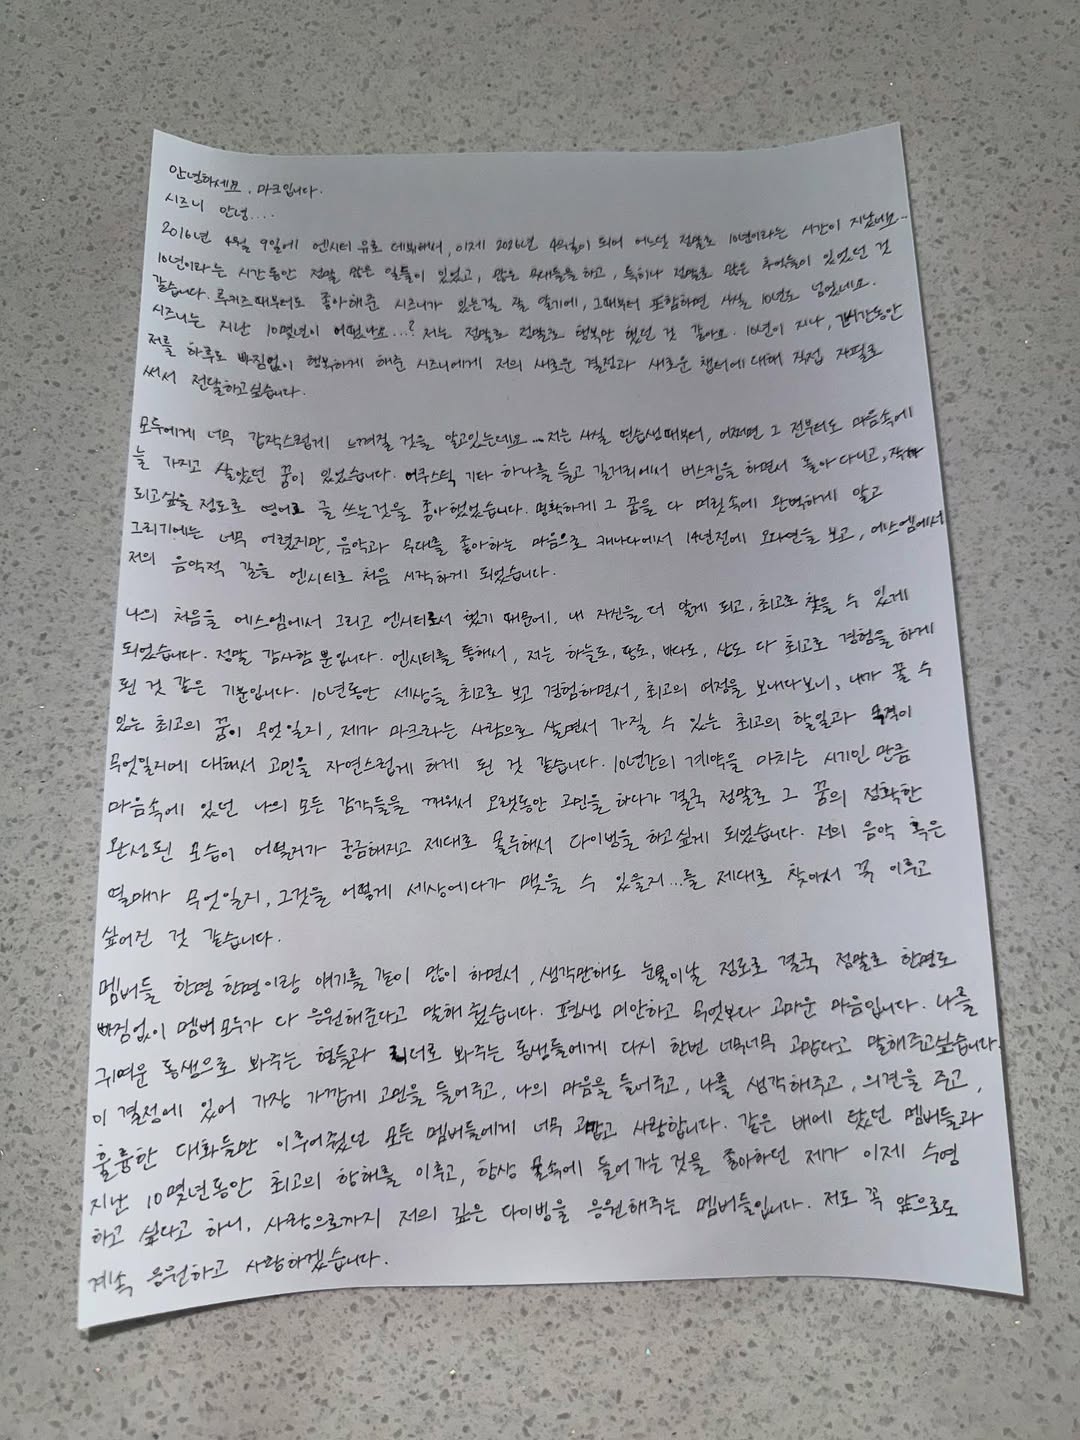 안녕하세요, 마크입니다.
시즈니 안녕....
2016년 4월 9일에 엔시티 유로 데뷔해서, 이제 2026년 4월이 되어 어느새 정말로 10년이라는 시간이 지났네요..
10년이라는 시간동안 정말 많은 일들이 있었고, 많은 무대들을 하고, 특히나 정말로 많은 추억들이 있었던 것
같습니다. 루키즈때부터도 좋아해준 시즈니가 있는걸 잘 알기에, 그때부터 포함하면 사실 10년도 넘었네요.
시즈니는 지난 10몇년이 어땠나요...? 저는 정말로 정말로 행복만 했던 것 같아요. 10년이 지나, 긴시간동안
저를 하루도 빠짐없이 행복하게 해준 시즈니에게 저의 새로운 결정과 새로운 챕터에 대해 직접 자필로
써서 전달하고싶습니다.
모두에게 너무 갑작스럽게 느껴질 것을 알고있는데요... 저는 사실 연습생때부터, 어쩌면 그 전부터도 마음속에
늘 가지고 살았던 꿈이 있었습니다. 어쿠스틱 기타 하나를 들고 길거리에서 버스킹을 하면서 돌아다니고, 작가
되고싶을 정도로 영어로 글 쓰는것을 좋아했었습니다. 명확하게 그 꿈을 다 머릿속에 완벽하게 알고
그리기에는 너무 어렸지만, 음악과 무대를 좋아하는 마음으로 캐나다에서 14년전에 오디션을 보고, 에스엠에서
저의 음악적 길을 엔시티로 처음 시작하게 되었습니다.
나의 처음을 에스엠에서 그리고 엔시티로서 했기 때문에, 내 자신을 더 알게 되고, 최고로 찾을 수 있게
되었습니다. 정말 감사함 뿐입니다. 엔시티를 통해서, 저는 하늘도, 땅도, 바다도, 산도 다 최고로 경험을 하게
된 것 같은 기분입니다. 10년동안 세상을 최고로 보고 경험하면서, 최고의 여정을 보내다보니, 내가 꿀 수
있는 최고의 꿈이 무엇일지, 제가 마크라는 사람으로 살면서 가질 수 있는 최고의 할일과 목적이
무엇일지에 대해서 고민을 자연스럽게 하게 된 것 같습니다. 10년간의 계약을 마치는 시기인 만큼
마음속에 있던 나의 모든 감각들을 깨워서 오랫동안 고민을 하다가 결국 정말로 그 꿈의 정확한
완성된 모습이 어떨지가 궁금해지고 제대로 몰두해서 다이빙을 하고싶게 되었습니다. 저의 음악 혹은
열매가 무엇일지, 그것을 어떻게 세상에다가 맺을 수 있을지...를 제대로 찾아서 꼭 이루고
싶어진 것 같습니다.
멤버들 한명 한명이랑 얘기를 같이 많이 하면서, 생각만해도 눈물이날 정도로 결국 정말로 한명도
빠짐없이 멤버 모두가 다 응원해준다고 말해줬습니다. 평생 미안하고 무엇보다 고마운 마음입니다. 나를
귀여운 동생으로 봐주는 형들과 리더로 봐주는 동생들에게 다시 한번 너무너무 고맙다고 말해주고싶습니다.
이 결정에 있어 가장 가깝게 고민을 들어주고, 나의 마음을 들어주고, 나를 생각해주고, 의견을 주고,
훌륭한 대화들만 이루어줬던 모든 멤버들에게 너무 고맙고 사랑합니다. 같은 배에 탔던 멤버들과
지난 10몇년동안 최고의 항해를 이루고, 항상 물속에 들어가는 것을 좋아하던 제가 이제 수영
하고 싶다고 하니, 사랑으로까지 저의 깊은 다이빙을 응원해주는 멤버들입니다. 저도 꼭 앞으로도
계속 응원하고 사랑하겠습니다.